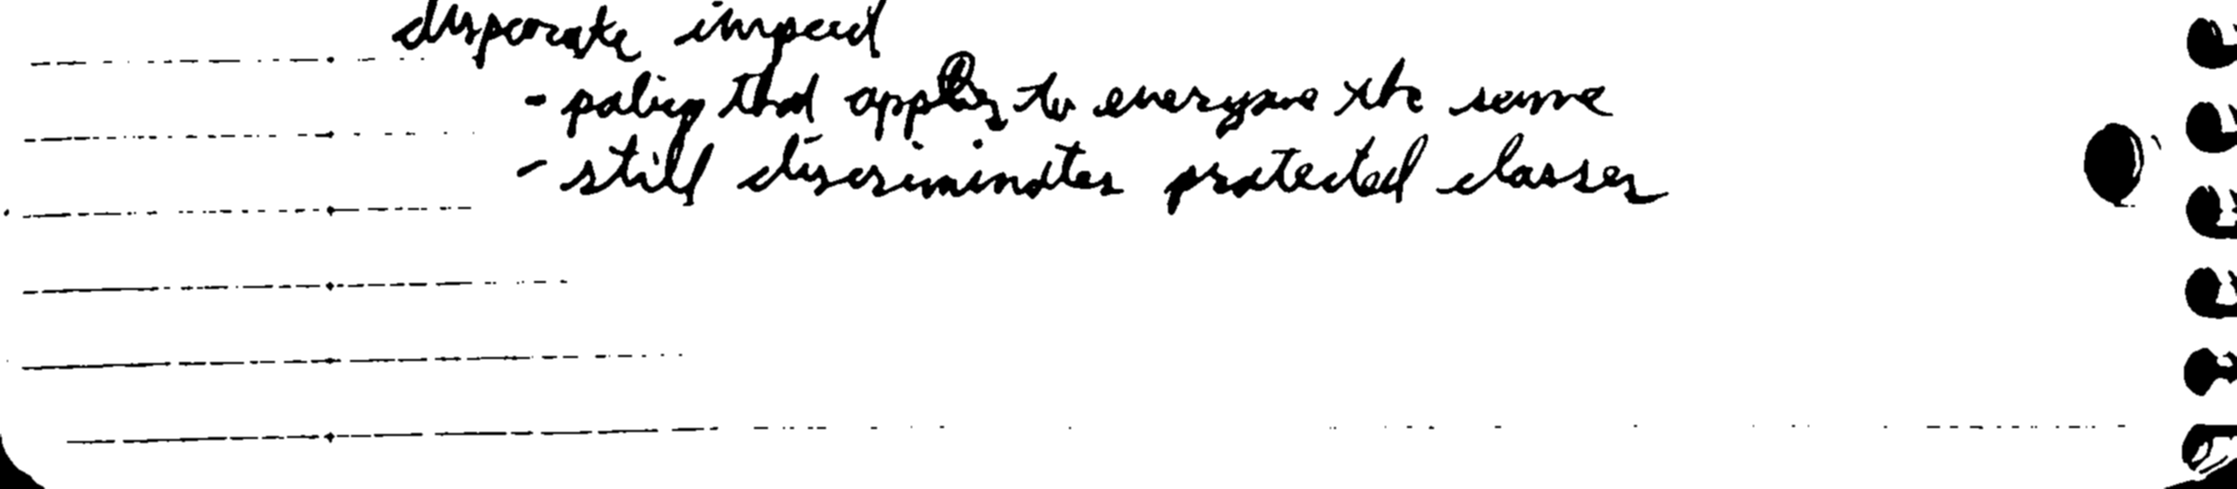 disparate impact
- policy that applies to everyone the same
- still discriminates protected classes